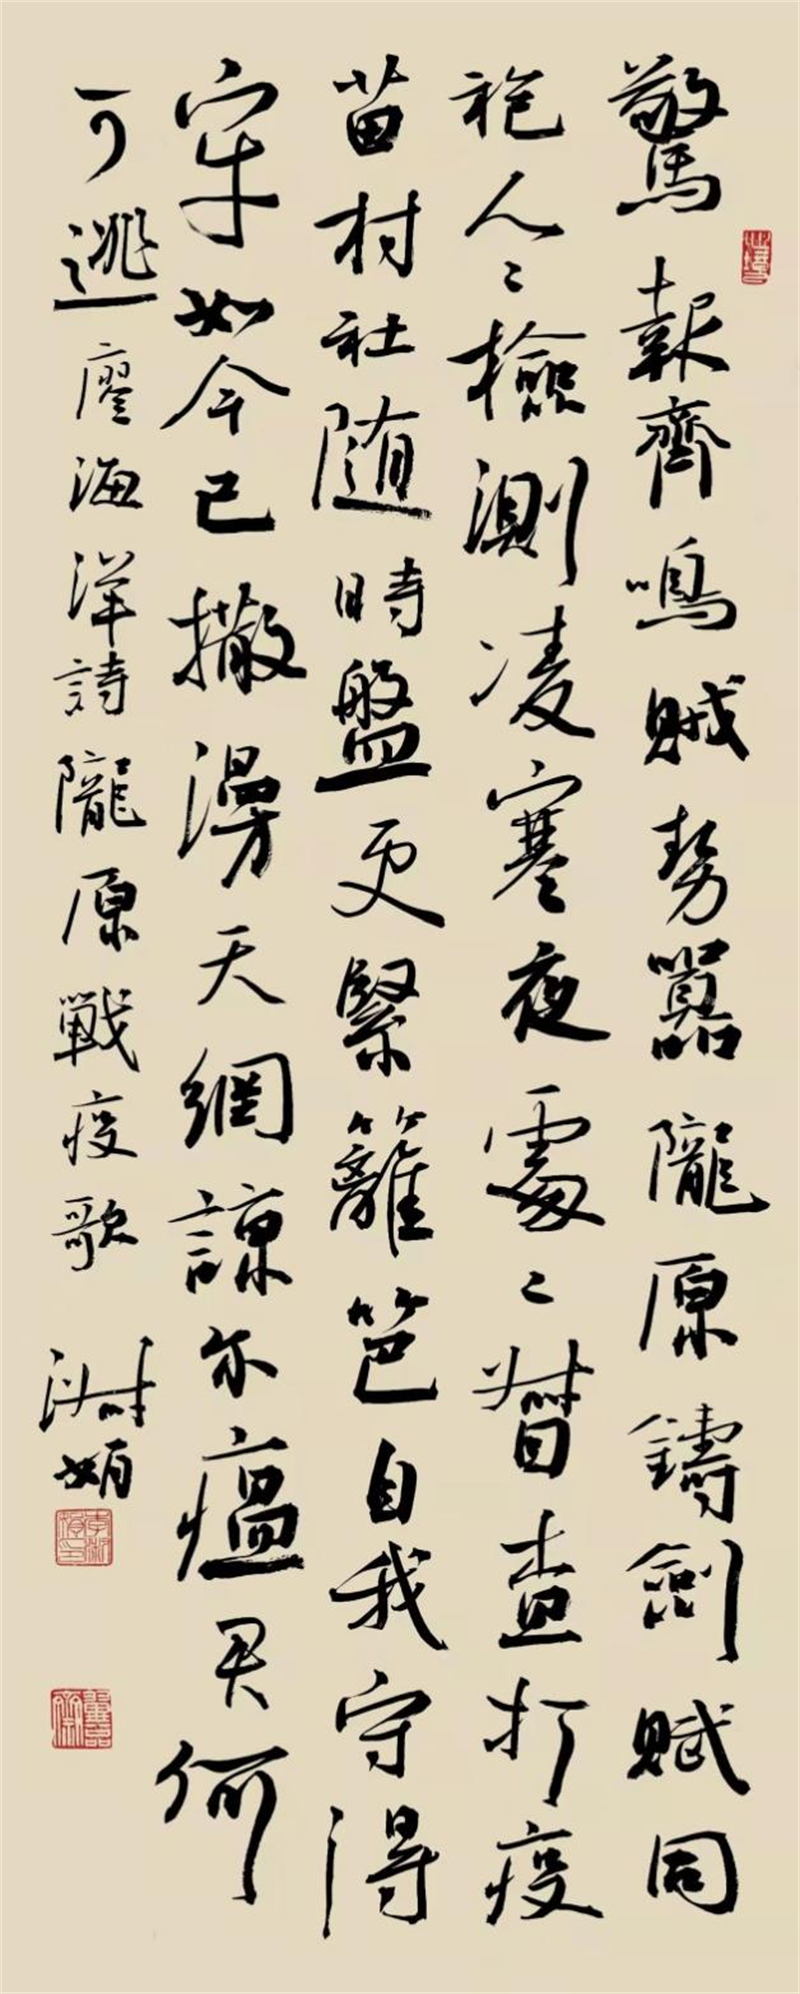 驚報齊鳴賊勢囂隴原鑄劍賦同
袍人〻檢測凌寒夜處〻督查打疫
苗村社随時盤更緊籬笆自我守得
牢如今已撒漫天網諒尔瘟君何
可逃廖海洋詩隴原戰疫歌